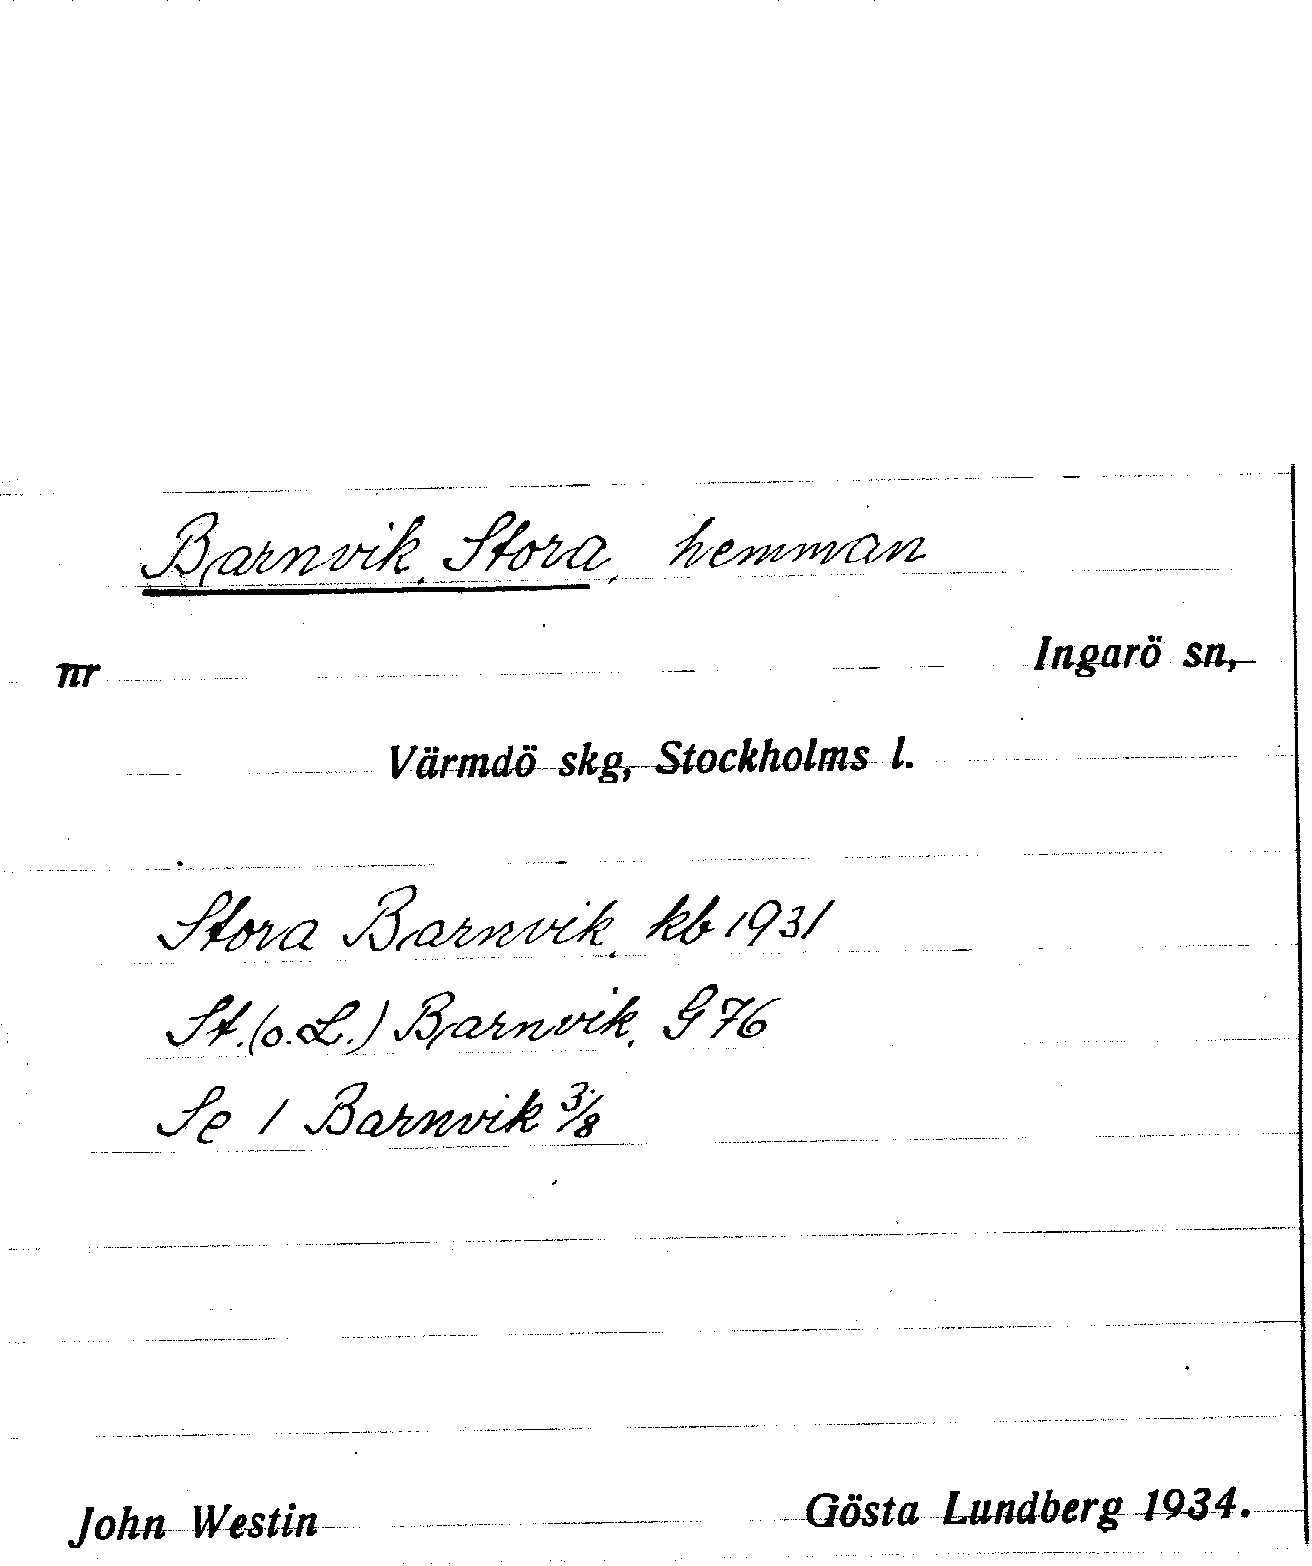 Barnvik, Stora, hemman
nr Ingarö sn,
Värmdö skg, Stockholms l.
Stora Barnvik, kb 1931
St. (o. L.) Barnvik, G 76
Se 1 Barnvik 3/8
John Westin Gösta Lundberg 1934.